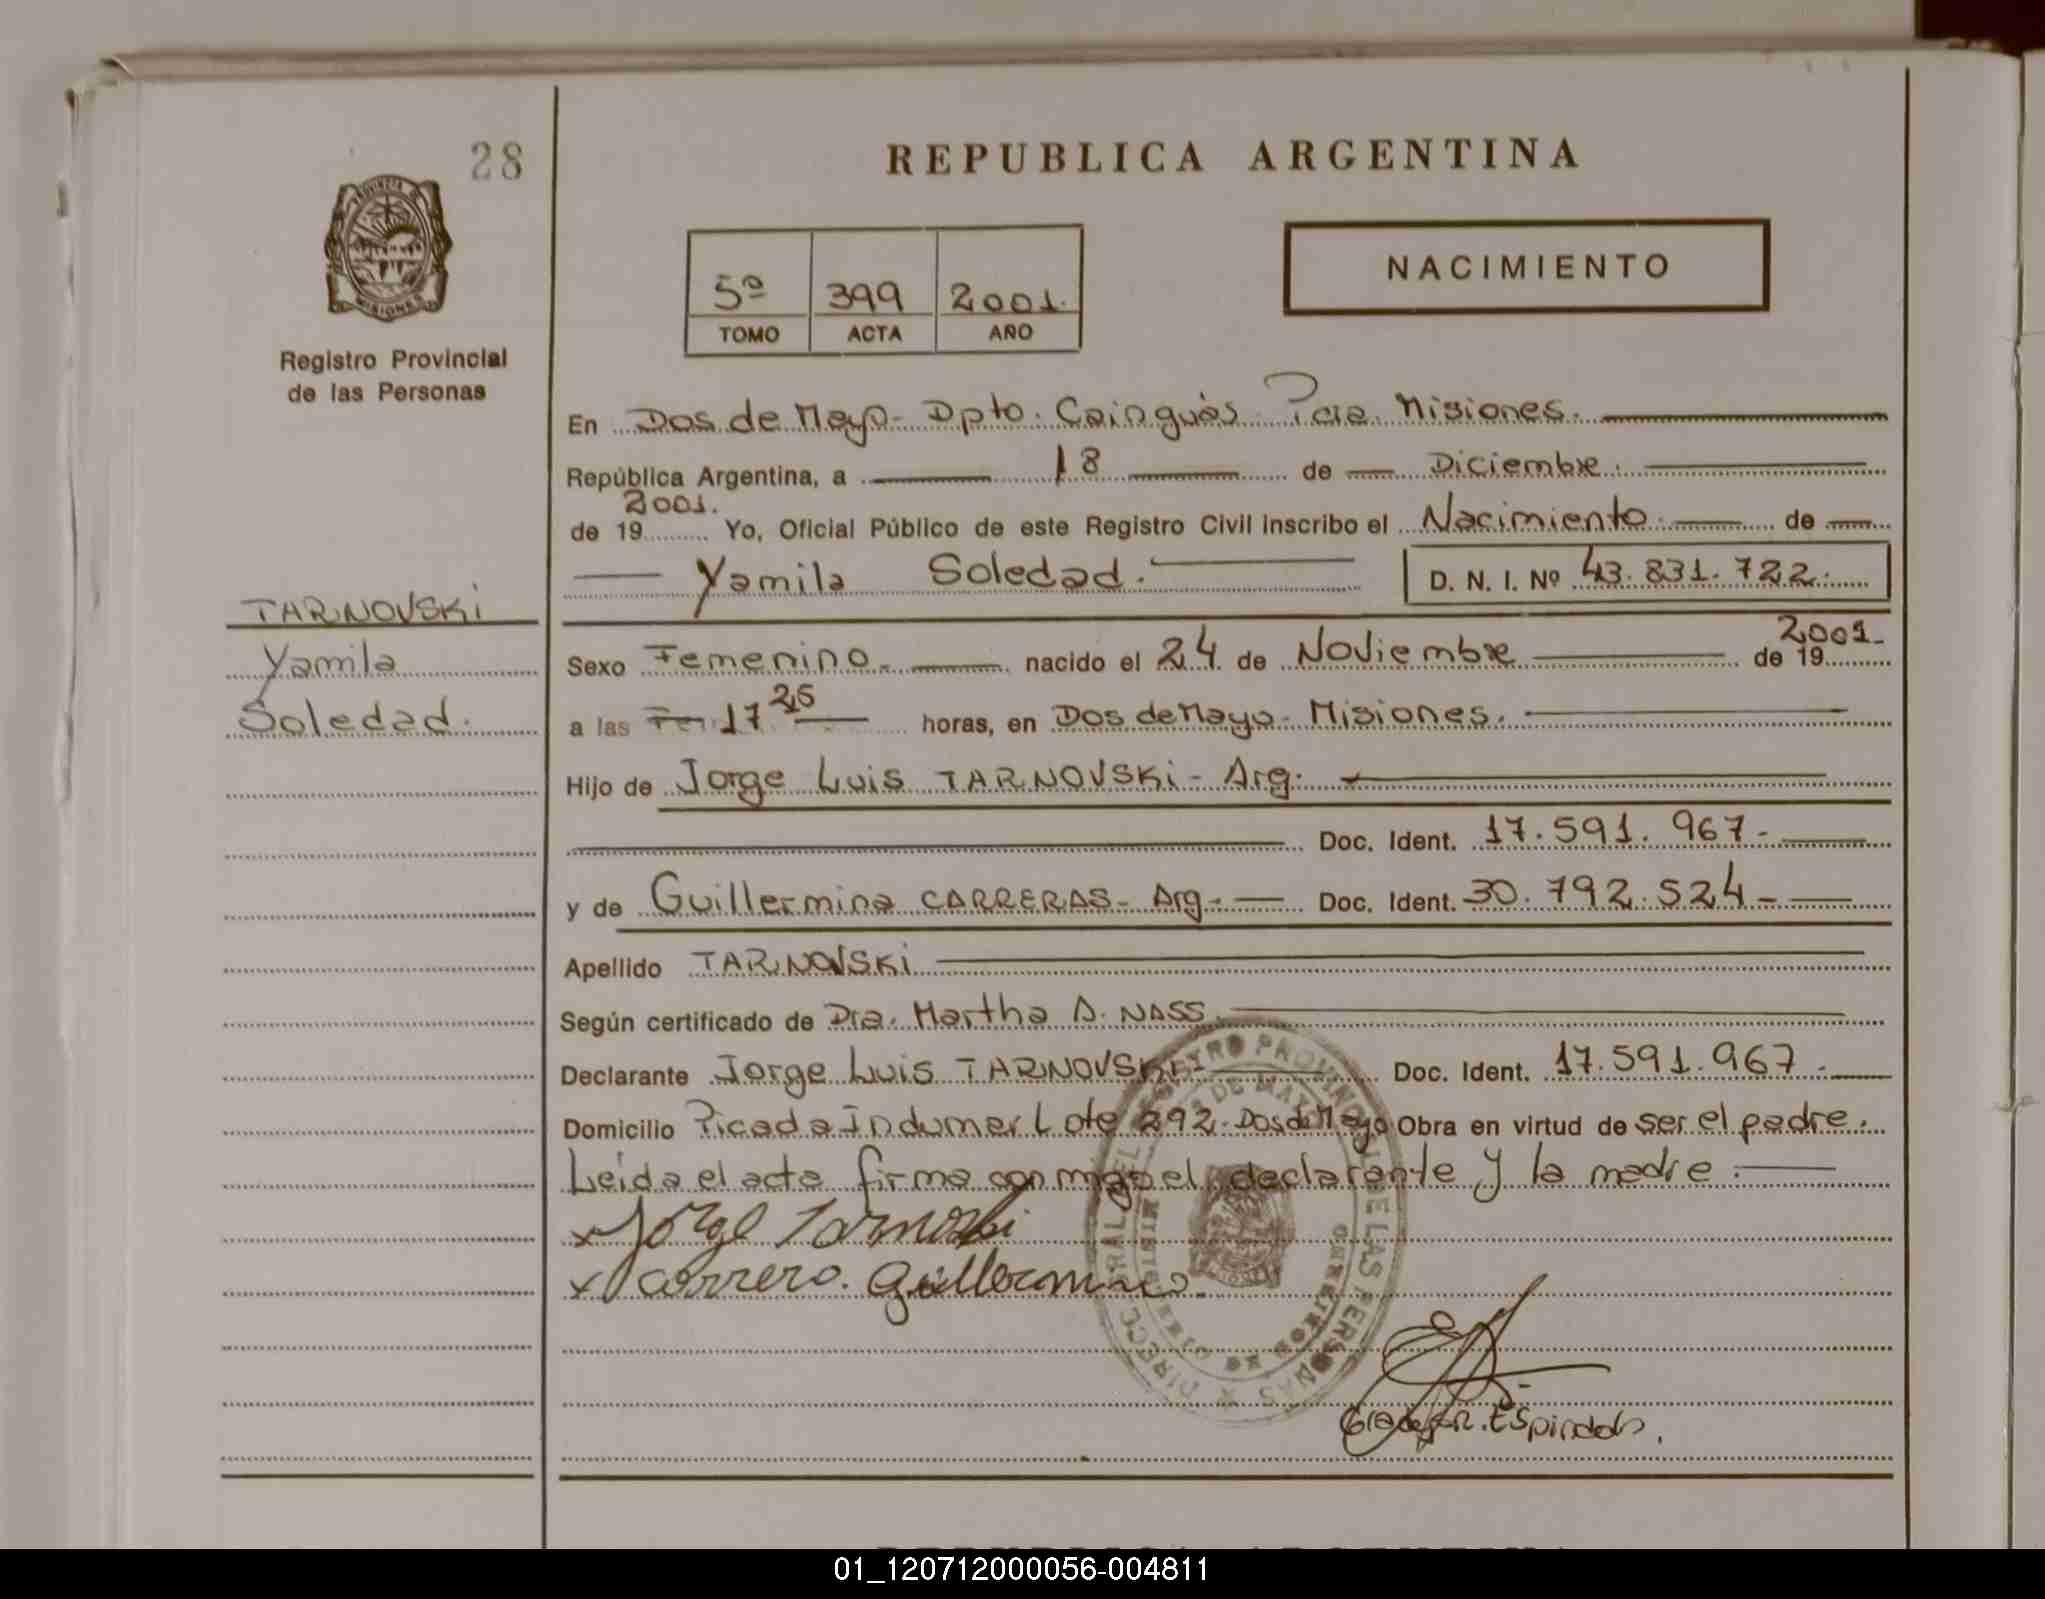 28
REPUBLICA ARGENTINA
PROVINCIA D
MISIONES
Registro Provincial
de las Personas
5º 399 2001.
TOMO ACTA AÑO
NACIMIENTO
En Dos de Mayo - Dpto. Cainguás Pcia. Misiones.
República Argentina, a 18 de Diciembre.
2001.
de 19 Yo, Oficial Público de este Registro Civil inscribo el Nacimiento de
Yamila Soledad. D. N. I. Nº 43.831.722.
TARNOVSKi
Yamila
Soledad.
Sexo Femenino. nacido el 24 de Noviembre de 19 2001-
a las Fe 17 25 horas, en Dos de Mayo - Misiones.
Hijo de Jorge Luis TARNOVSKi - Arg.
Doc. Ident. 17.591.967-
y de Guillermina CARRERAS - Arg. - Doc. Ident. 30.792.524-
Apellido TARNOVSKi
Según certificado de Dra. Martha A. NASS.
Declarante Jorge Luis TARNOVSKi Doc. Ident. 17.591.967.
Domicilio Picada Indumar Lote 292 - Dos de Mayo Obra en virtud de ser el padre.
Leida el acta firma conmigo el declarante y la madre.
x Jorge Tarnovski
x Carrera. Guillermina.
REGISTRO PROVINCIAL DE LAS PERSONAS
DOS DE MAYO
MISIONES
Espindola.
01_120712000056-004811